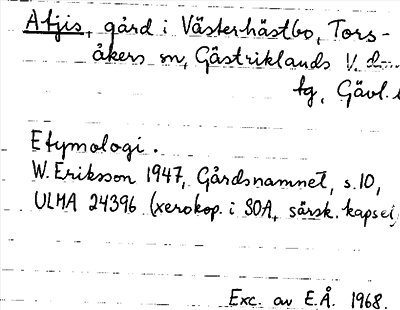 Atjis, gård i Västerhästbo, Tors-
åkers sn, Gästriklands V. d...
tg, Gävl.
Etymologi.
W. Eriksson 1947, Gårdsnamnet, s. 10,
ULMA 24396 (xerokop. i SOA, särsk. kapsel,
Exc. av E.Å. 1968.